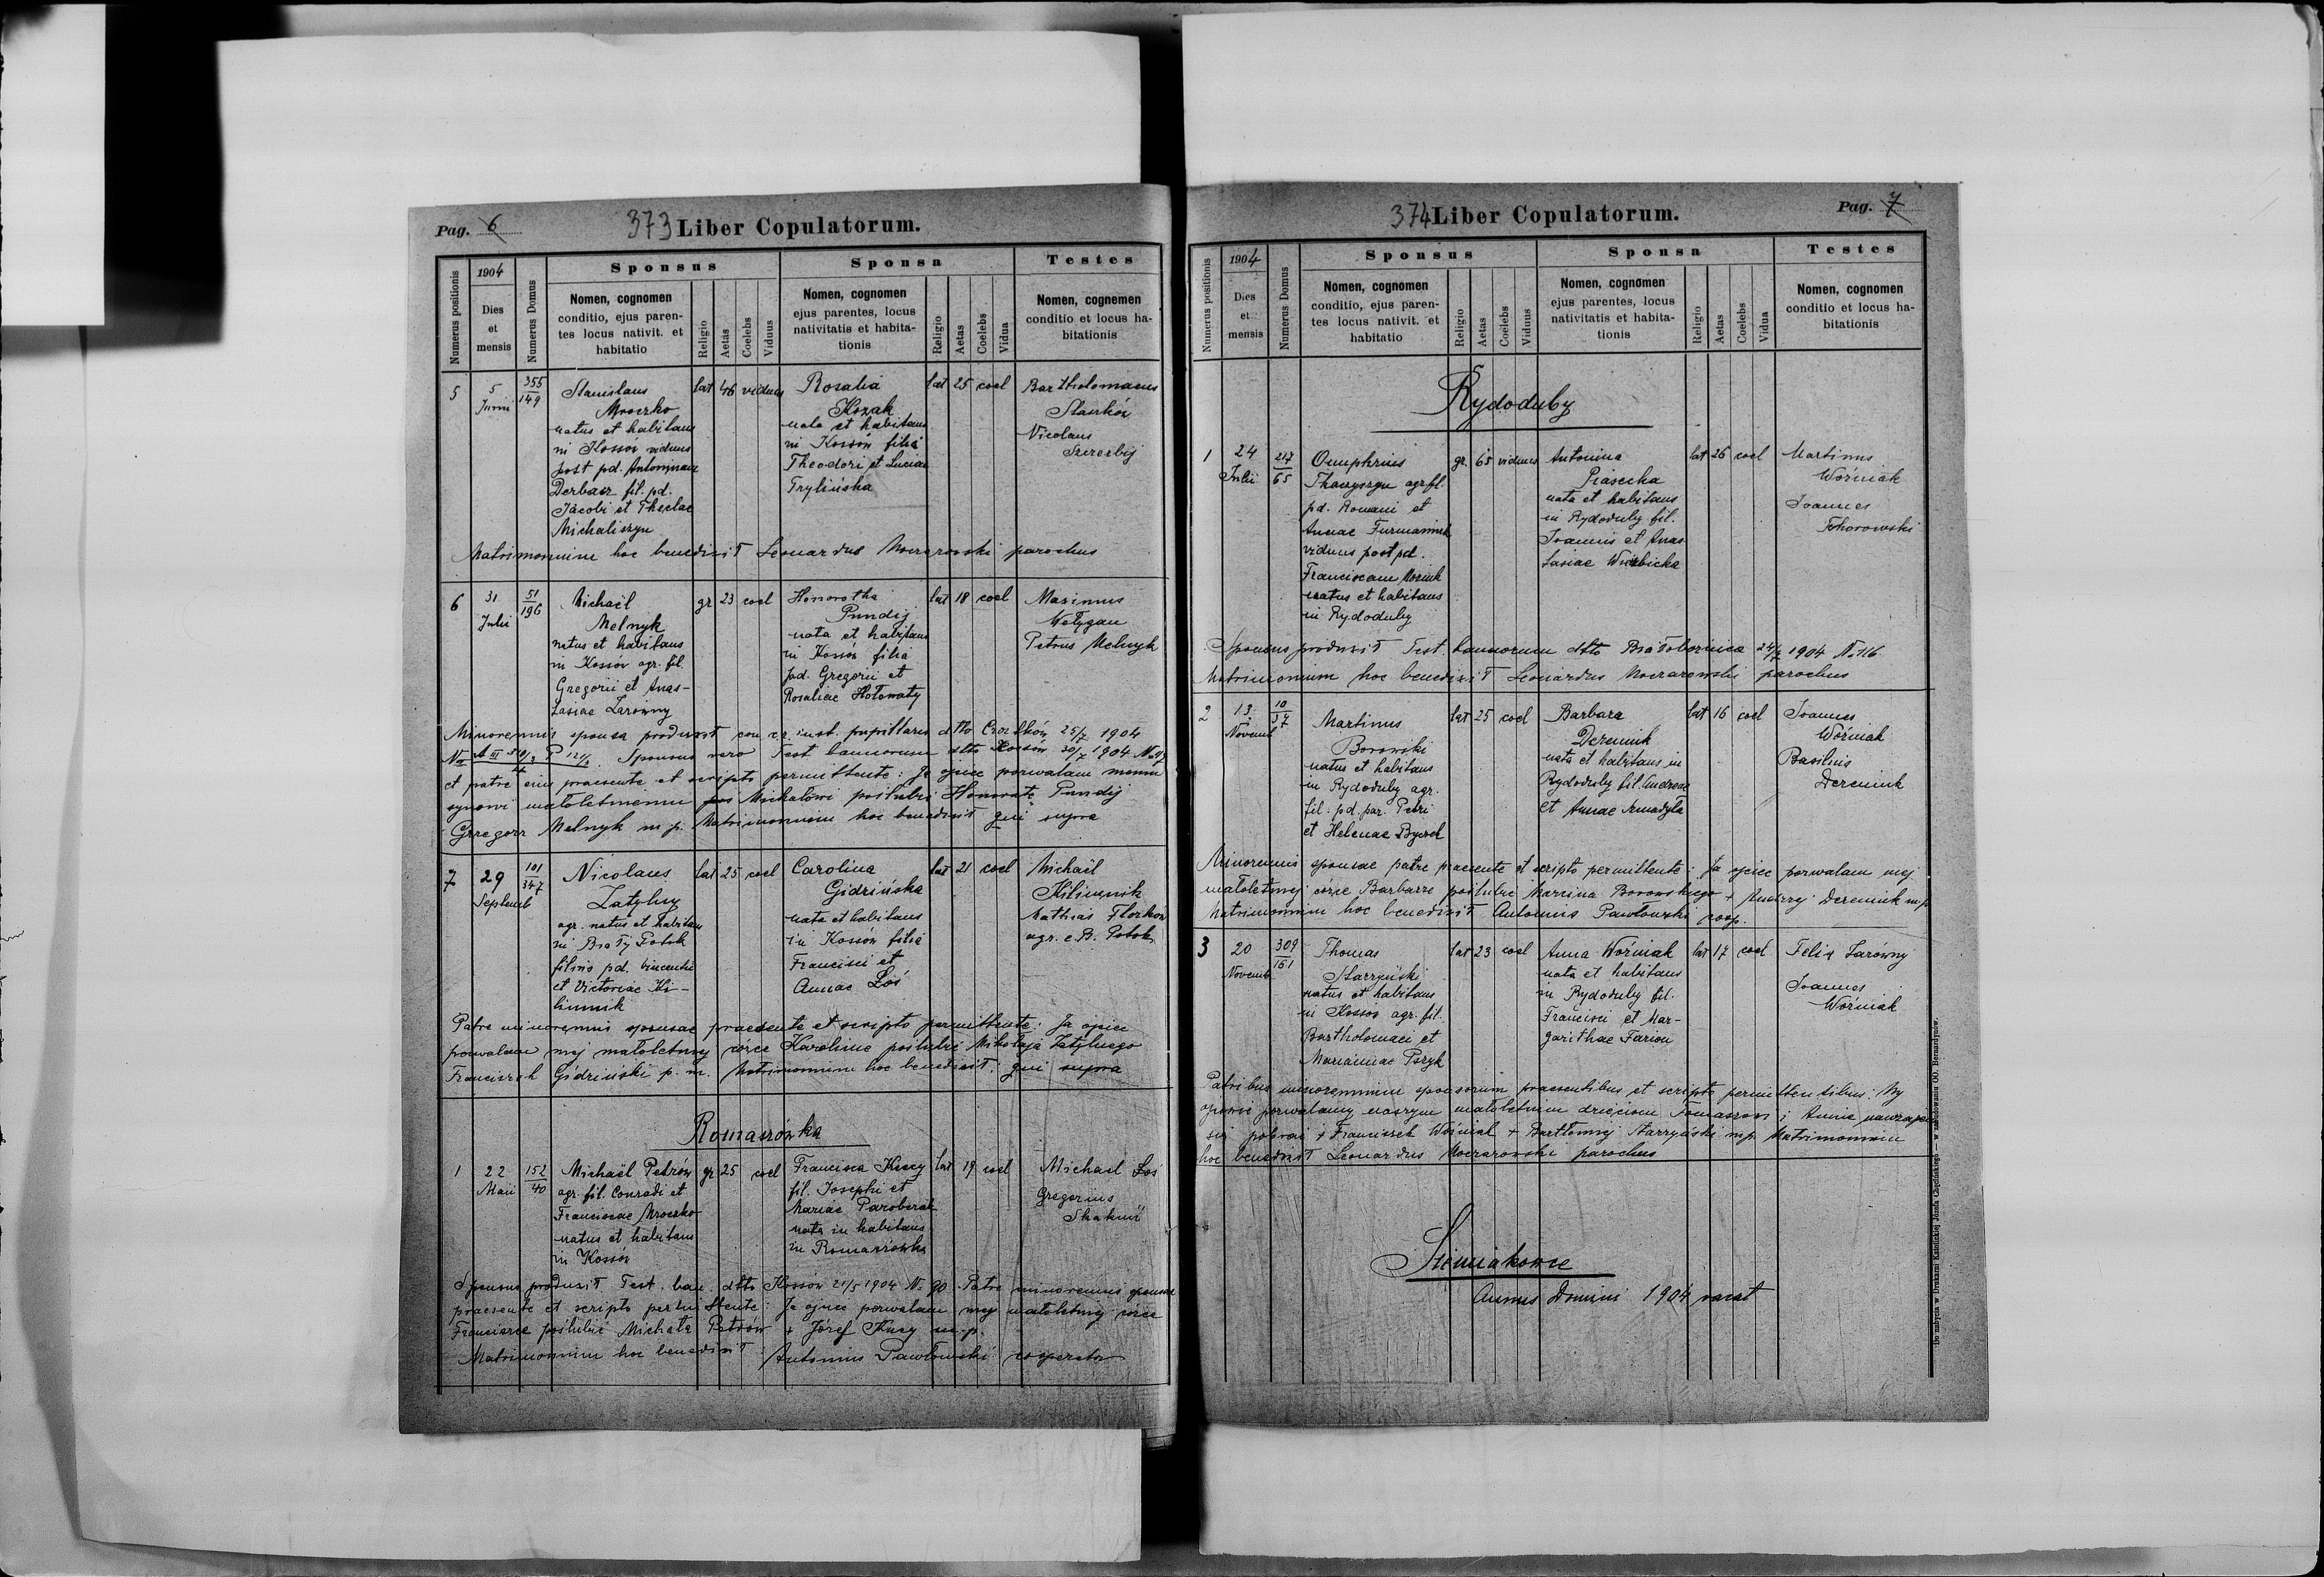 Pag. 6
373 Liber Copulatorum.
Numerus positionis
1904
Dies
et
mensis
Numerus Domus
Sponsus
Nomen, cognomen
conditio, ejus paren-
tes locus nativit. et
habitatio
Religio
Aetas
Coelebs
Viduus
Sponsa
Nomen, cognomen
ejus parentes, locus
nativitatis et habita-
tionis
Religio
Aetas
Coelebs
Vidua
Testes
Nomen, cognemen
conditio et locus ha-
bitationis
5
5
Junii
355
149
Stanislaus
Mroczko
natus et habitans
in Kossów viduus
post pd. Antoninam
Derbasz fil. pd.
Jacobi et Theclae
Michaliszyn
lat 46 viduus
Rosalia
Kozak
nata et habitans
in Kossów filia
Theodori et Luciae
Trylińska
lat 25 coel
Bartholomaeus
Nicolaus
Matrimonium hoc benedixit Leonardus parochus
6
31
Julii
51
196
Michaël
Melnyk
natus et habitans
in Kossów agr. fil.
Gregorii et Anas-
tasiae Zarówny
gr 23 coel
Honoratha
Pundij
nata et habitans
in Kossów filia
pd. Gregorii et
Rosaliae Hołowaty
lat 18 coel
Marinus
Petrus Melnyk
Minorennis sponsa produxit pupillaris dtto Czortków 25/7 1904
Sponsus vero Test bannorum dtto Kossów 30/7 1904
et patre eius praesente et scripto permittente: Ja ojciec pozwalam memu
synowi małoletniemu Michałowi poślubić Honoratę Pundij
Grzegorz Melnyk m. p. Matrimonium hoc benedixit qui supra
7
29
Septemb
101
347
Nicolaus
Zatylny
agr. natus et habitans
in Biały Potok
filius pd. Vincentii
et Victoriae Ki-
limnik
lat 25 coel
Carolina
Gidzińska
nata et habitans
in Kossów filia
Francisci et
Annae Łoś
lat 21 coel
Michaël
Kilimnik
Mathias Florków
agr. e B. Potok
Patre minorennis sponsae praesente et scripto permittente: Ja ojciec
pozwalam mej małoletniej córce Karolinie poślubić Mikołaja Zatylnego
Franciszek Gidziński p. m. Matrimonium hoc benedixit qui supra
Romaszówka
1
22
Maii
152
40
Michaël Petrów
agr. fil. Conradi et
Franciscae Mroczko
natus et habitans
in Kossów
gr 25 coel
Francisca Kucy
fil. Josephi et
Mariae Paroberak
nata in habitans
in Romaszówka
lat 19 coel
Michael Łoś
Gregorius
Sponsus produxit Test. ban. dtto Kossów 21/5 1904 N. 90. Patre minorennis sponsae
praesente et scripto permittente: Ja ojciec pozwalam mej małoletniej córce
Franciszce poślubić Michała Petrów + Józef Kucy m. p.
Matrimonium hoc benedixit Antonius Pawłowski cooperator
374 Liber Copulatorum.
Pag. 7
Numerus positionis
1904
Dies
et
mensis
Numerus Domus
Sponsus
Nomen, cognomen
conditio, ejus paren-
tes locus nativit. et
habitatio
Religio
Aetas
Coelebs
Viduus
Sponsa
Nomen, cognomen
ejus parentes, locus
nativitatis et habita-
tionis
Religio
Aetas
Coelebs
Vidua
Testes
Nomen, cognomen
conditio et locus ha-
bitationis
Rydoduby
1
24
Julii
217
65
Onuphrius
agr fil.
pd. Romani et
Annae Furmaniuk
viduus post pd.
Franciscam
natus et habitans
in Rydoduby
gr. 65 viduus
Antonina
Piasecka
nata et habitans
in Rydoduby fil.
Joannis et Anas
tasiae Wierbicka
lat 26 coel
Martinus
Woźniak
Joannes
Tchorowski
Sponsus produxit Test. bannorum dtto Białobożnica 24/7 1904 N. 116
Matrimonium hoc benedixit Leonardus parochus
2
13
Novemb
10
37
Martinus
Borowski
natus et habitans
in Rydoduby agr.
fil. pd. par. Petri
et Helenae
lat 25 coel
Barbara
Dereniuk
nata et habitans in
Rydoduby fil. Andreae
et Annae
lat 16 coel
Joannes
Woźniak
Basilius
Dereniuk
Minorennis sponsae patre praesente et scripto permittente: Ja ojciec pozwalam mej
małoletniej córce Barbarze poślubić Marcina Borowskiego + Andrzej Dereniuk mp
Matrimonium hoc benedixit Antonius Pawłowski coop.
3
20
Novemb
309
161
Thomas
Starzyński
natus et habitans
in Kossów agr. fil.
Bartholomaei et
Mariannae Pszyk
lat 23 coel
Anna Woźniak
nata et habitans
in Rydoduby fil.
Francisci et Mar-
garithae Farion
lat 17 coel
Felix Zarówny
Joannes
Woźniak
Patribus minorennium sponsorum praesentibus et scripto permittentibus: My
ojcowie pozwalamy naszym małoletnim dzieciom Tomaszowi i Annie nawzajem
się pobrać + Franciszek Woźniak + Bartłomiej Starzyński mp. Matrimonium
hoc benedixit Leonardus parochus
Siemiakowce
Annus Domini 1904 vacat
Do nabycia w Drukarni Katolickiej Józefa Chęcińskiego — w zabudowaniu OO. Bernardynów.